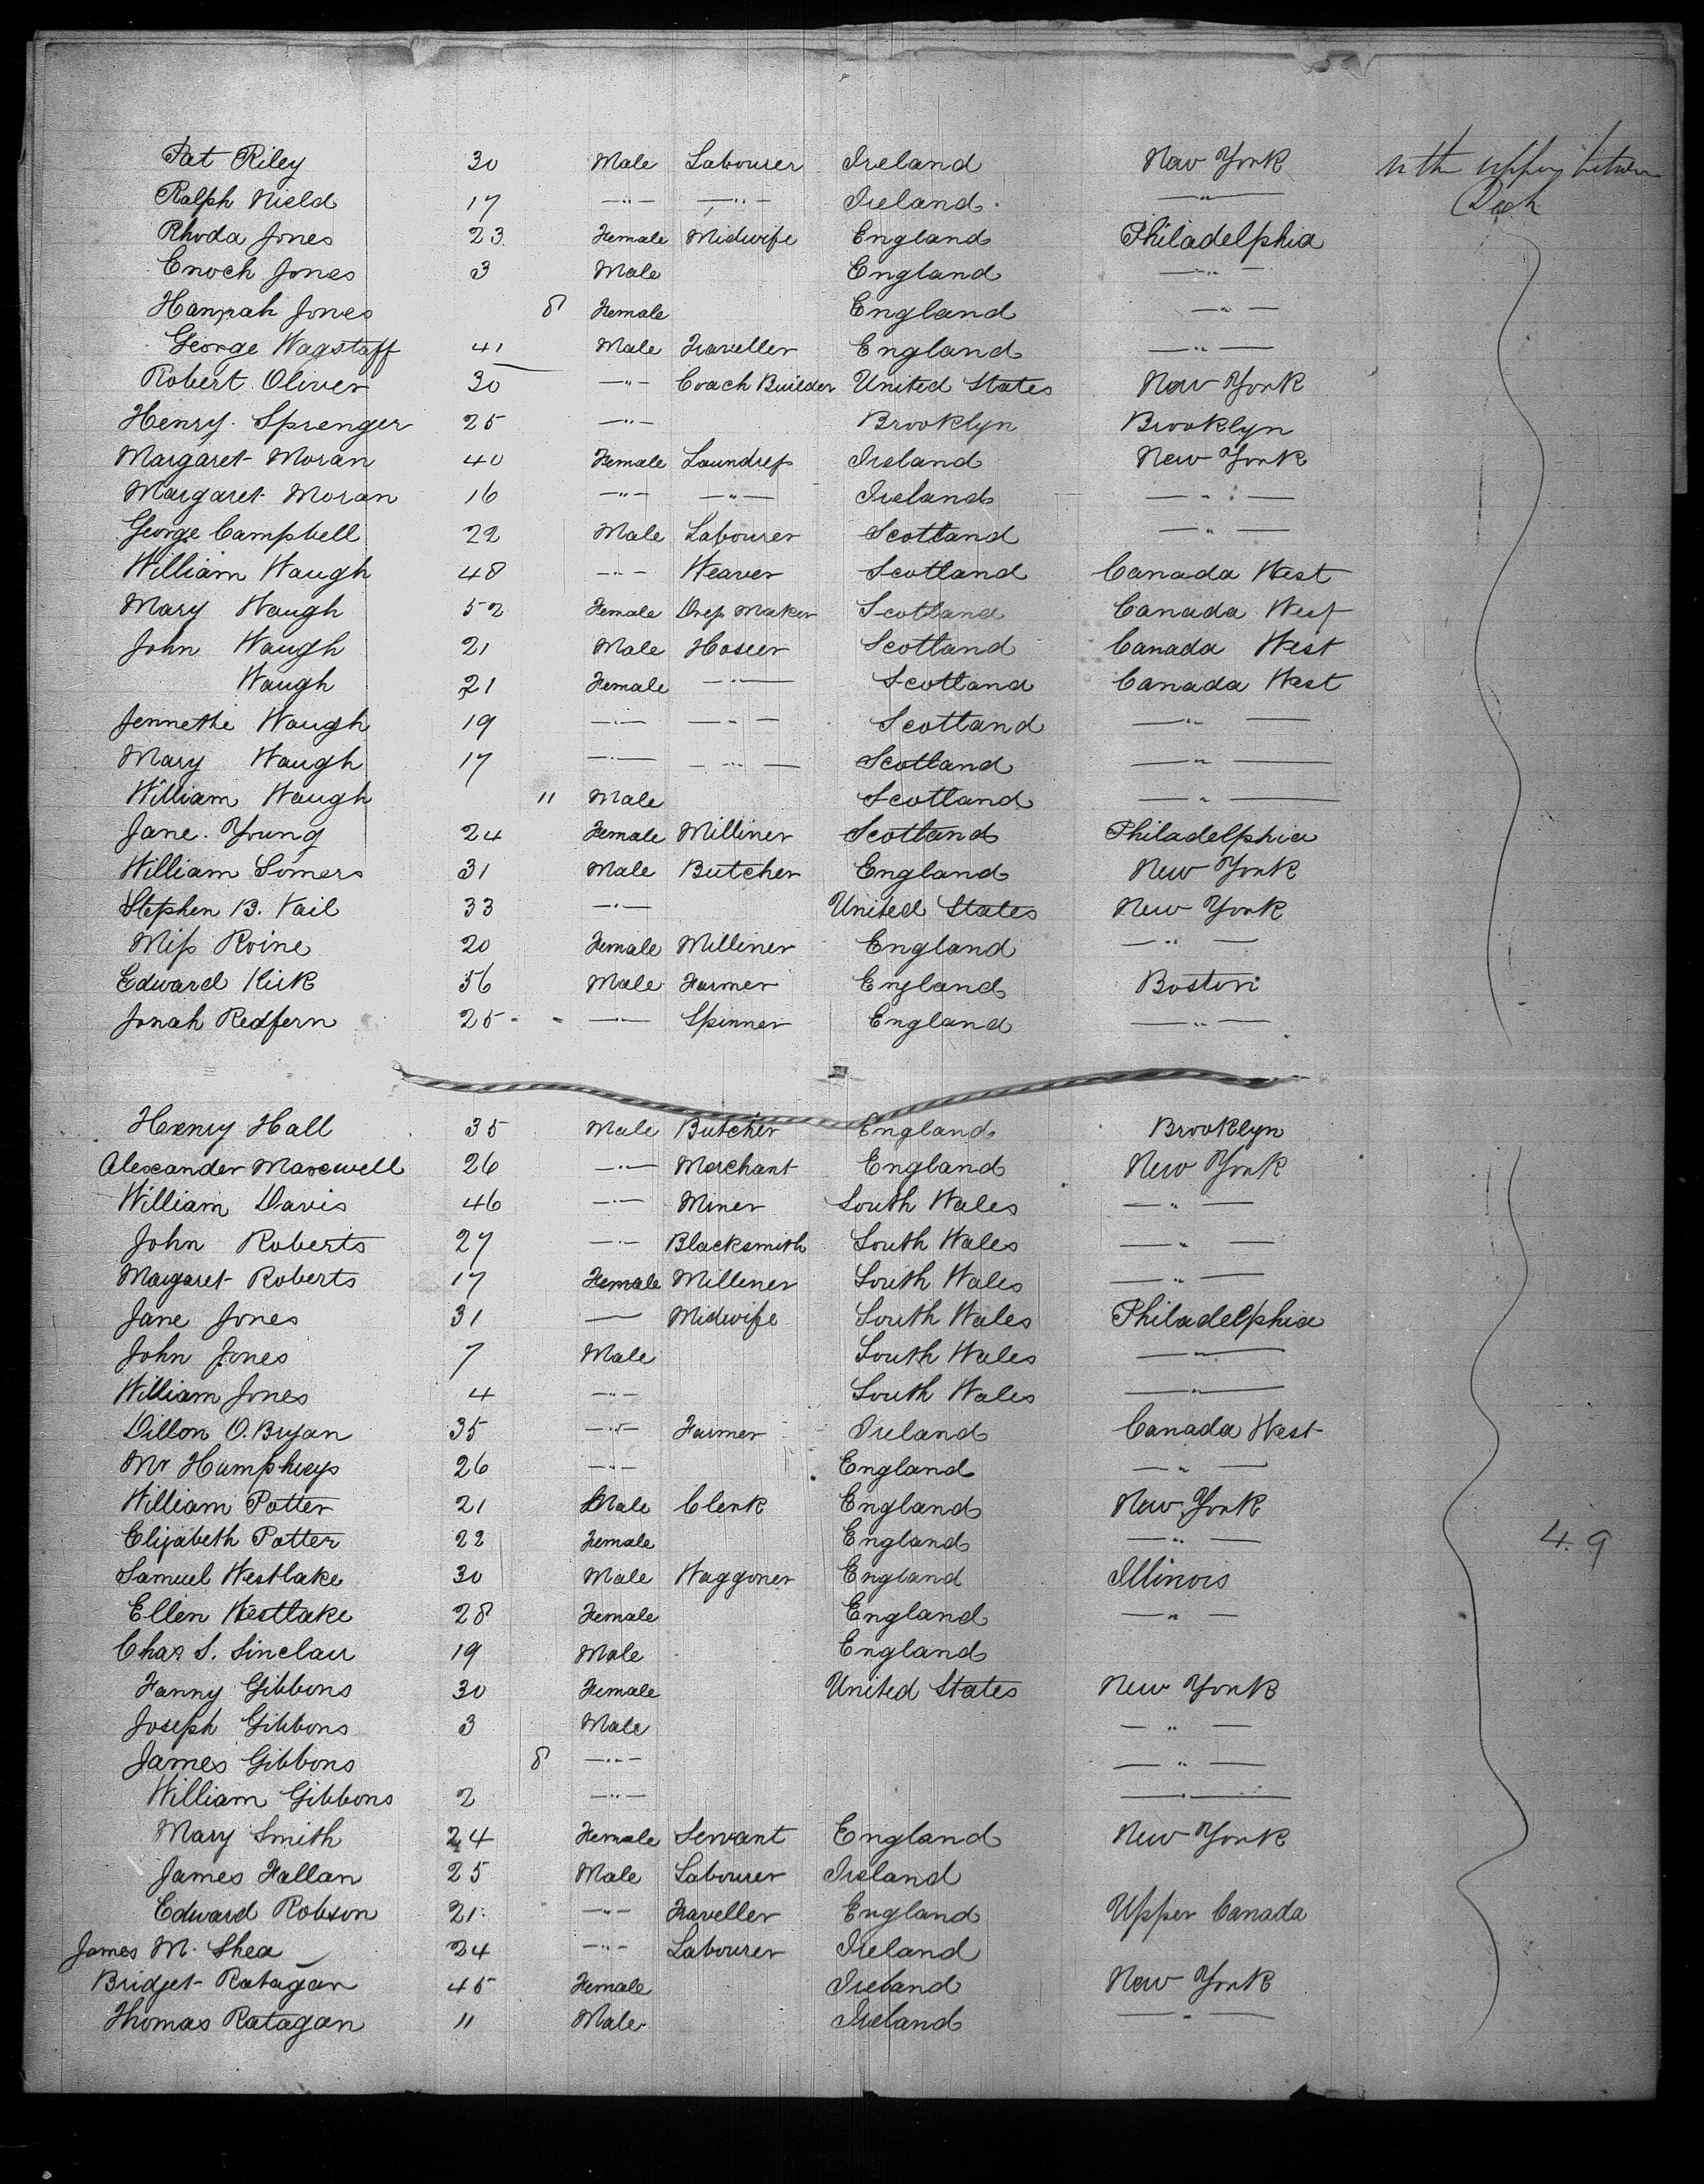 Pat Riley 30 Male Labourer Ireland New York
upper between
Ralph Nield 17 —"— —"— Ireland —"—
Deck
Rhoda Jones 23 Female Midwife England Philadelphia
Enoch Jones 3 Male England —"—
Hannah Jones 8 Female England —"—
George Wagstaff 41 Male Traveller England —"—
Robert Oliver 30 —"— Coach Builder United States New York
Henry Sprenger 25 —"— Brooklyn Brooklyn
Margaret Moran 40 Female Laundress Ireland New York
Margaret Moran 16 —"— —"— Ireland —"—
George Campbell 22 Male Labourer Scotland —"—
William Waugh 48 —"— Weaver Scotland Canada West
Mary Waugh 52 Female Dress Maker Scotland Canada West
John Waugh 21 Male Hosier Scotland Canada West
Waugh 21 Female —"— Scotland Canada West
Jennethe Waugh 19 —"— —"— Scotland —"—
Mary Waugh 17 —"— —"— Scotland —"—
William Waugh 11 Male Scotland —"—
Jane Young 24 Female Milliner Scotland Philadelphia
William Somers 31 Male Butcher England New York
Stephen B. Vail 33 —"— United States New York
Miss Roine 20 Female Milliner England —"—
Edward Kirk 56 Male Farmer England Boston
Jonah Redfern 25 —"— Spinner England —"—
Henry Hall 35 Male Butcher England Brooklyn
Alexander Maxwell 26 —"— Merchant England New York
William Davis 46 —"— Miner South Wales —"—
John Roberts 27 —"— Blacksmith South Wales —"—
Margaret Roberts 17 Female Milliner South Wales —"—
Jane Jones 31 — Midwife South Wales Philadelphia
John Jones 7 Male South Wales —"—
William Jones 4 —"— South Wales —"—
Dillon O.Bryan 35 —"— Farmer Ireland Canada West
Mr Humphreys 26 —"— England —"—
William Potter 21 Male Clerk England New York
Elizabeth Potter 22 Female England —"—
4.9
Samuel Westlake 30 Male Waggoner England Illinois
Ellen Westlake 28 Female England —"—
Chas S. Sinclair 19 Male England
Fanny Gibbons 30 Female United States New York
Joseph Gibbons 3 Male —"—
James Gibbons 8 —"— —"—
William Gibbons 2 —"— —"—
Mary Smith 24 Female Servant England New York
James Fallan 25 Male Labourer Ireland
Edward Robson 21 —"— Traveller England Upper Canada
James M. Shea 24 —"— Labourer Ireland
Bridget Ratagan 45 Female Ireland New York
Thomas Ratagan 11 Male Ireland —"—